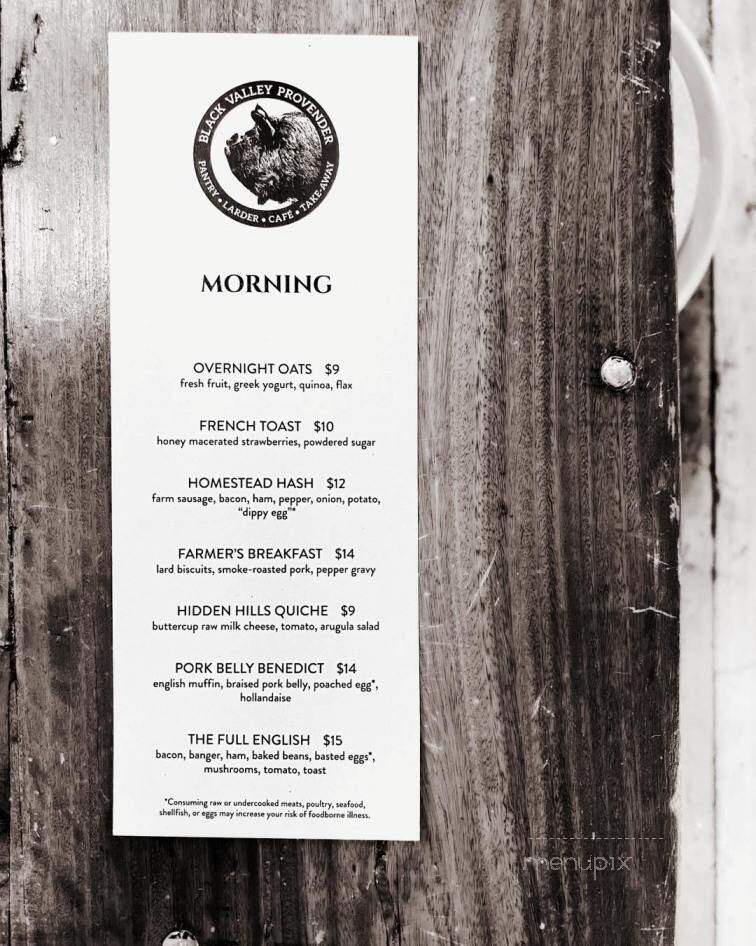 BLACK VALLEY PROVENDER
PANTRY • LARDER • CAFÉ • TAKE-AWAY
MORNING
OVERNIGHT OATS $9
fresh fruit, greek yogurt, quinoa, flax
FRENCH TOAST $10
honey macerated strawberries, powdered sugar
HOMESTEAD HASH $12
farm sausage, bacon, ham, pepper, onion, potato,
“dippy egg”*
FARMER'S BREAKFAST $14
lard biscuits, smoke-roasted pork, pepper gravy
HIDDEN HILLS QUICHE $9
buttercup raw milk cheese, tomato, arugula salad
PORK BELLY BENEDICT $14
english muffin, braised pork belly, poached egg*,
hollandaise
THE FULL ENGLISH $15
bacon, banger, ham, baked beans, basted eggs*,
mushrooms, tomato, toast
*Consuming raw or undercooked meats, poultry, seafood,
shellfish, or eggs may increase your risk of foodborne illness.
menupix